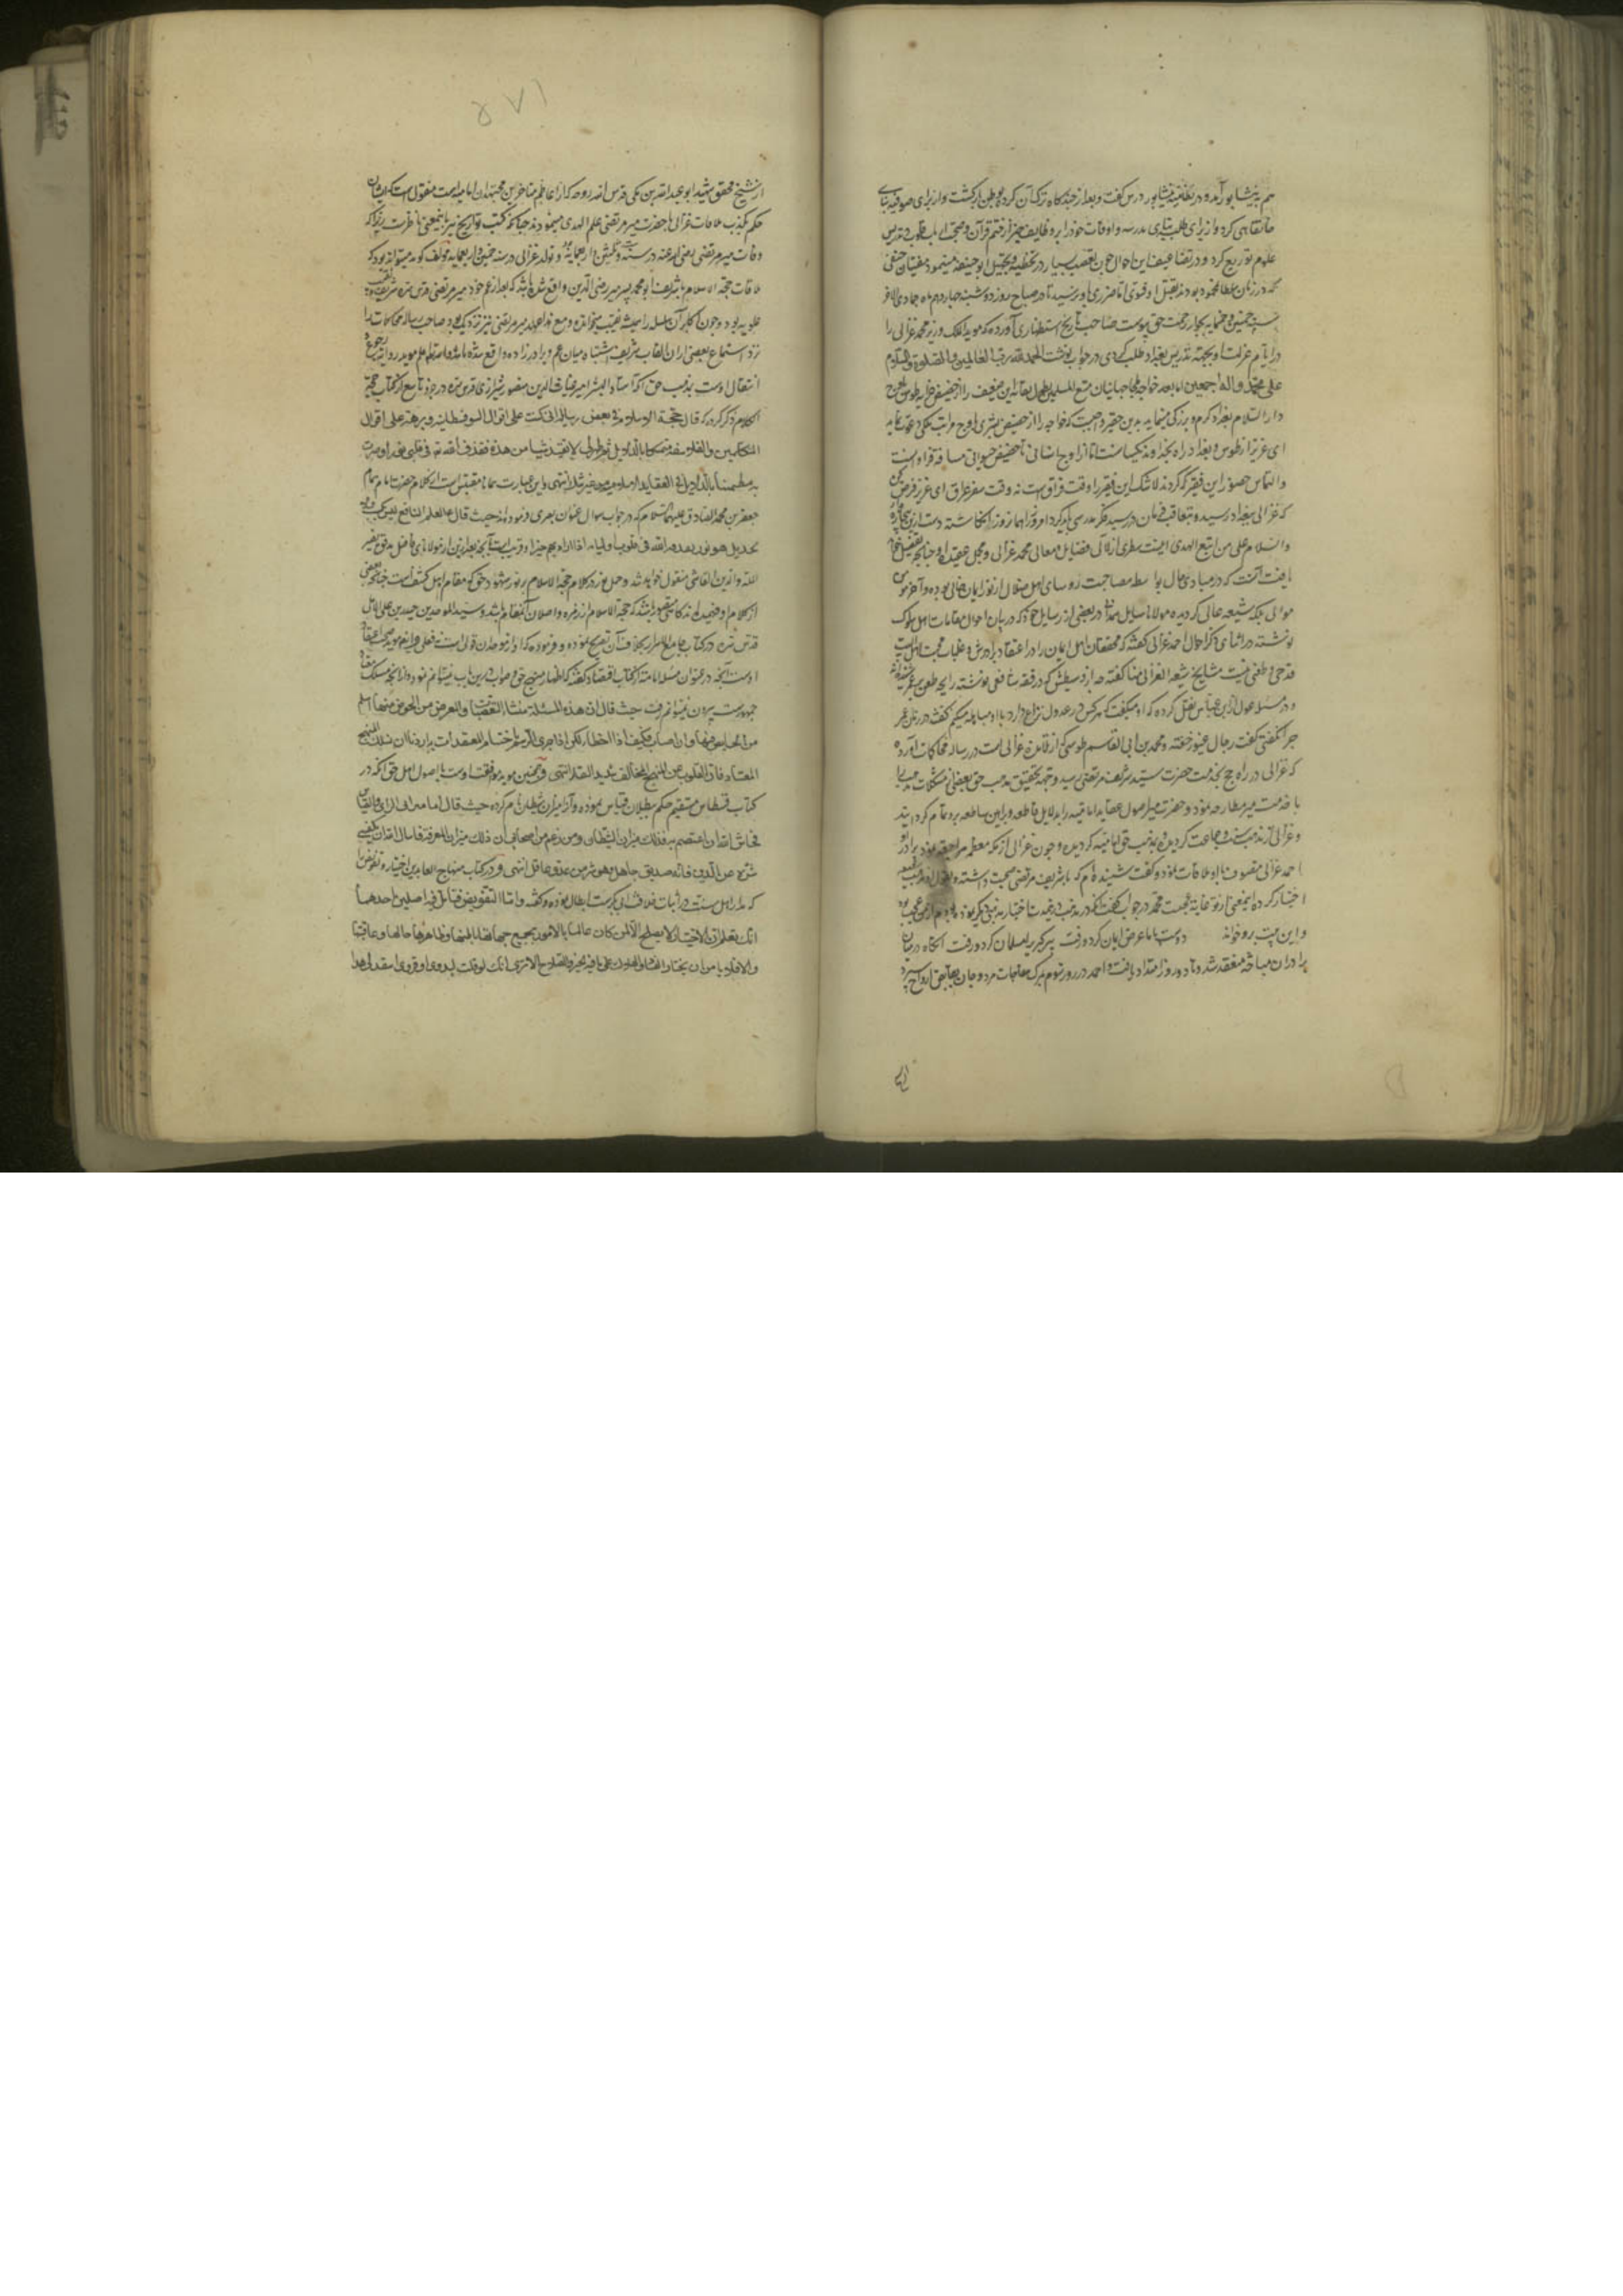 هم به نیشابور آمد و در نظامیه نیشابور درس گفت و بعد از چندگاه ترک آن کرد و بوطن بازگشت و از برای صوفیه بنای
خانقاهی کرد و از برای طلبه بنای مدرسه و اوقات خود را بر وظایف خیر از ختم قرآن و صحبت ارباب قلوب و تدریس
علوم توزیع کرد و در تضاعیف این احوال تعصب بسیار در تخطیه و تجهیل ابوحنیفه مینمود مفتیان حنفی
که در زمان سلطان محمود بودند بقتل او فتوی اما ضرری باو نرسید تا در صباح روز دوشنبه چهاردهم ماه جمادی الاخر
سنه خمس و خمسمایه بجوار رحمت حق پیوست صاحب تاریخ استظهاری آورده که موید الملک وزیر محمد غزالی را
در ایام عزلت او بجهة تدریس بغداد طلب کردی در جواب نوشت الحمد لله رب العالمین والصلوة والسلام
علی محمد واله اجمعین اما بعد خواجه ملجا جهانیان متع المسلمین بطول بقائه این ضعیف را از حضیض طوس باوج
دار السلام بغداد کرم و بزرگی مینماید بدین حقیر واجبست که خواجه را از حضیض بشری باوج مراتب ملکی دعوت نماید
ای عزیز از طوس و بغداد راه بخداوند یکسانست اما از اوج انسانی تا حضیض حیوانی مسافت فراوانست
و التماس حضور این فقیر که کردند لا شک این فقیر را وقت فراقست نه وقت سفر عراق ای عزیز فرض کن
که غزالی ببغداد رسید و متعاقب فرمان در رسید فکر مدرسی باید کرد امروز را همان روز انگاشته دست ازین بیچاره بدار
والسلام علی من اتبع الهدی اینست سطری از لآلی فضایل و معالی محمد غزالی و مجمل عقیده او چنانچه بتفصیل خواهی
یافت آنست که در مبادی حال بواسطه مصاحبت روسای اهل ضلال از نور ایمان خالی بوده و آخر مومن
موالی بلکه شیعه عالی گردیده مولانا در بعضی از رسایل خود که در بیان احوال مقامات اهل سلوک
نوشته در اثنای ذکر احوال احمد غزالی گفته که محققان اهل ایمان را در اعتقاد برادرش و غلبات محبت اهل بیت
قدحی و طعنی نیست مشایخ شیعه الغزالی منا گفته اند از وسیطش که در فقه شافعی نوشته رایحه طعن بر عمر شنیده اند
و در مسئله عول از ابن عباس نقل کرده که او میگفت که هر کس در عدول نزاع دارد با او مباهله میکنم گفتند در زمان عمر
چرا نگفتی گفت رجل غیور خفته و محمد بن ابی القاسم طوسی که از تلامذه غزالی است در رساله محاکمات آورده
که غزالی در راه حج بخدمت حضرت سید شریف مرتضی رسید و جهة تحقیق مذهب حق بعضی از مشکلات مذهب را
با خدمت میر مطارحه نمود و حضرت میر اصول عقاید امامیه را بدلایل قاطعه و براهین ساطعه بر او تمام گردانید
و غزالی از مذهب سنت و جماعت گردیده بمذهب حق امامیه گرویده و چون غزالی از مکه معظمه مراجعه نمود برادر او
احمد غزالی بطوس با او ملاقات نمود و گفت شنیده ام که با شریف مرتضی صحبت داشته و مذهب شیعه
اختیار کرده این معنی از تو غایت عجبست محمد در جواب گفت
و این بیت برو خواند دوست با ما عرض ایمان کرد و رفت پیر گبری را مسلمان کرد و رفت آنگاه در میان
برادران مباحثه منعقد شد و تا دو روز امتداد یافت و احمد در روز سوم بمرگ مفاجات مرد و جان بقابض ارواح سپرد
از شیخ محقق شهید ابو عبد الله بن مکی قدس الله روحه که از اعاظم متاخرین مجتهدان امامیه است منقولست که ایشان
حکم بکذب ملاقات غزالی با حضرت میر مرتضی علم الهدی مینمودند چنانکه کتب تواریخ نیز باین معنی ناظرست زیرا که
وفات میر مرتضی رضی الله عنه در سنه ست و ثلثین و اربعمایه بود و تولد غزالی در سنه خمسین و اربعمایه مولف گوید میتواند بود که
ملاقات حجة الاسلام با شریف ابو محمد پسر میر رضی الدین واقع شده باشد که بعد از عم خود میر مرتضی قدس سره شریف و نقیب
علویه بود و چون اکابر آن سلسله را همیشه نقیب میخوانده اند و مع هذا عهد میر مرتضی نیز نزدیک بود صاحب رساله محاکمات را
نزد استماع بعضی از آن القاب شریف اشتباه میان عم و برادرزاده واقع شده باشد و الله اعلم و موید روایت رجوع و
انتقال اوست بمذهب حق آنکه استاد البشر امیر غیاث الدین منصور شیرازی قدس سره در جزو تاسع از کتاب حجة
الکلام ذکر کرده که قال حجة الاسلام فی بعض رسایله انی کنت علی اقوال السوفسطائیه و برهة علی اقوال
المتکلمین والفلاسفه متمسکا بالدلایل ثم ظهر لی لا یفید شیئا من هذه فقذف الله تعالی فی قلبی نورا و صرت
به مطمئنا بالدلایل فی العقاید الاسلامیه غیر شک انتهی و این عبارت همانا مقتبس است از کلام حضرت امام همام
جعفر بن محمد الصادق علیهما السلام که در جواب سوال عنوان بصری فرموده اند حیث قال علیه السلام العلم النافع لیس بکسب
بل هو نور یقذفه الله فی قلوب اولیائه اذا اراد بهم خیرا و قریب است بآنچه بعد ازین از مولانای فاضل
منقول خواهد شد و حمل نور در کلام حجة الاسلام بر نور شهود حق که مقام اهل کشف است چنانچه بعضی
از کلام او فهمیده اند گاهی متصور باشد که حجة الاسلام از زمره واصلان آن مقام باشد و سید الموحدین حیدر بن علی الآملی
قدس سره در کتاب جامع الاسرار بخلاف آن تصریح نموده و فرموده که او از موحدان قولی است نه فعلی و ایضا موید صحت اعتقاد
اوست آنچه در عنوان مسئله امامت از کتاب اقتصاد گفته که اظهار منهج حق و صواب درین باب نمیتوانم نمود و از آنچه مسلک
جمهورست بیرون نمیتوانم رفت حیث قال ان هذه المسئلة منشأ التعصبات والمعرض من الخوض فیها اسلم
من الخایض فیها وان اصاب فکیف اذا اخطا ولکن اذا جری الرسم باختتام المعتقدات به اردنا ان نسلک المنهج
المعتاد فان القلوب عن المنهج المخالف شدید النفار انتهی و همچنین موید موافقت اوست با اصول اهل حق آنکه در
کتاب قسطاس مستقیم حکم ببطلان قیاس نموده و آنرا میزان شیطان نام کرده حیث قال اما میزان الرای والقیاس
فحاش الله ان اعتصم به فذلک میزان الشیطان ومن زعم من اصحابی ان ذلک میزان المعرفة فاسال الله ان یکفی
شره عن الدین فانه صدیق جاهل وهو شر من عدو عاقل انتهی و در کتاب منهاج العابدین اختیار و تفویض را
که مدار اهل سنت در اثبات خلافت ابی بکرست ابطال نموده و گفته واما التفویض فتامل فیه اصلین احدهما
انک تعلم ان الاختیار لا یصلح الا لمن کان عالما بالامور بجمیع جهاتها باطنها وظاهرها حالها وعاقبتها
والا فلا یامن ان یختار الفساد والهلاک علی ما فیه الخیر والصلاح الا تری انک لو قلت لبدوی او قروی انقد لی هذا